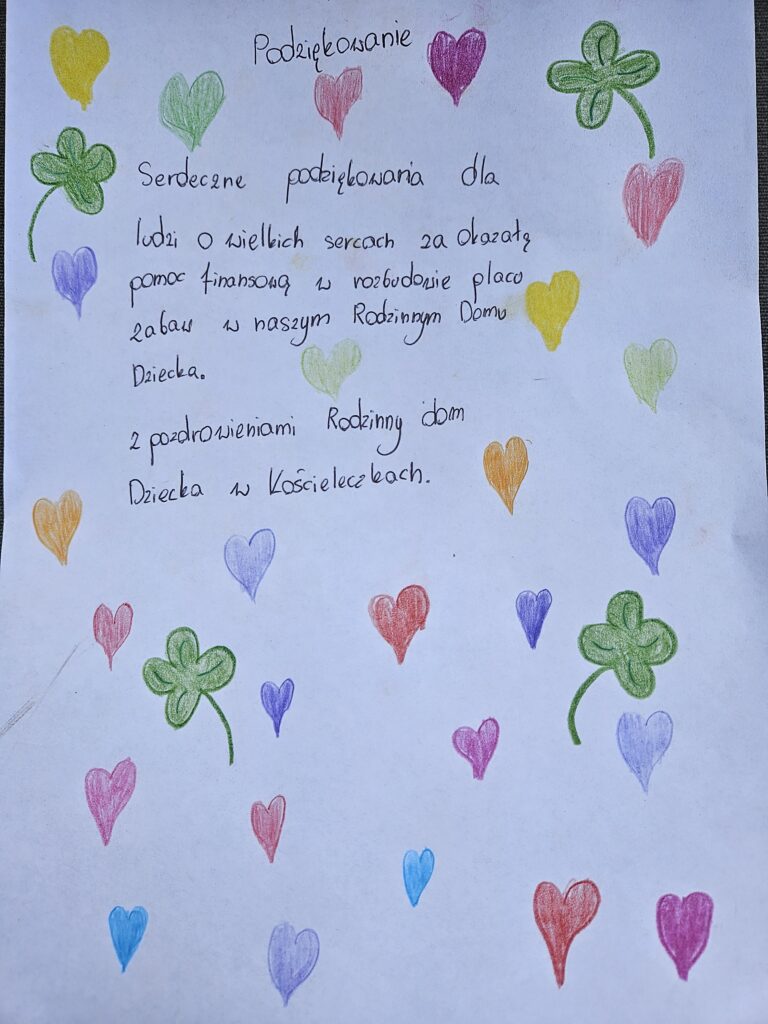 Podziękowanie
Serdeczne podziękowania dla
ludzi o wielkich sercach za okazałą
pomoc finansową w rozbudowie placu
zabaw w naszym Rodzinnym Domu
Dziecka.
z pozdrowieniami Rodzinny dom
Dziecka w Kościeleczkach.